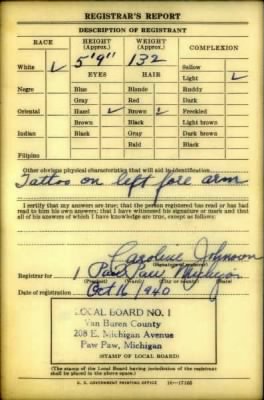 REGISTRAR'S REPORT
DESCRIPTION OF REGISTRANT
RACE HEIGHT (Approx.) WEIGHT (Approx.) COMPLEXION
White ✓ 5' 9" 132 Sallow
EYES HAIR Light ✓
Negro Blue Blonde Ruddy
Gray Red Dark
Oriental Hazel ✓ Brown ✓ Freckled
Brown Black Light brown
Indian Black Gray Dark brown
Bald Black
Filipino
Other obvious physical characteristics that will aid in identification
Tattoo on left fore arm
I certify that my answers are true; that the person registered has read or has had read to him his own answers; that I have witnessed his signature or mark and that all of his answers of which I have knowledge are true, except as follows:
Caroline Johnson
(Signature of registrar)
Registrar for 1 Paw Paw Michigan
(Precinct) (Ward) (City or county) (State)
Date of registration Oct 16 1940
LOCAL BOARD NO. 1
Van Buren County
208 E. Michigan Avenue
Paw Paw, Michigan
(STAMP OF LOCAL BOARD)
(The stamp of the Local Board having jurisdiction of the registrant shall be placed in the above space.)
U. S. GOVERNMENT PRINTING OFFICE 16—17105